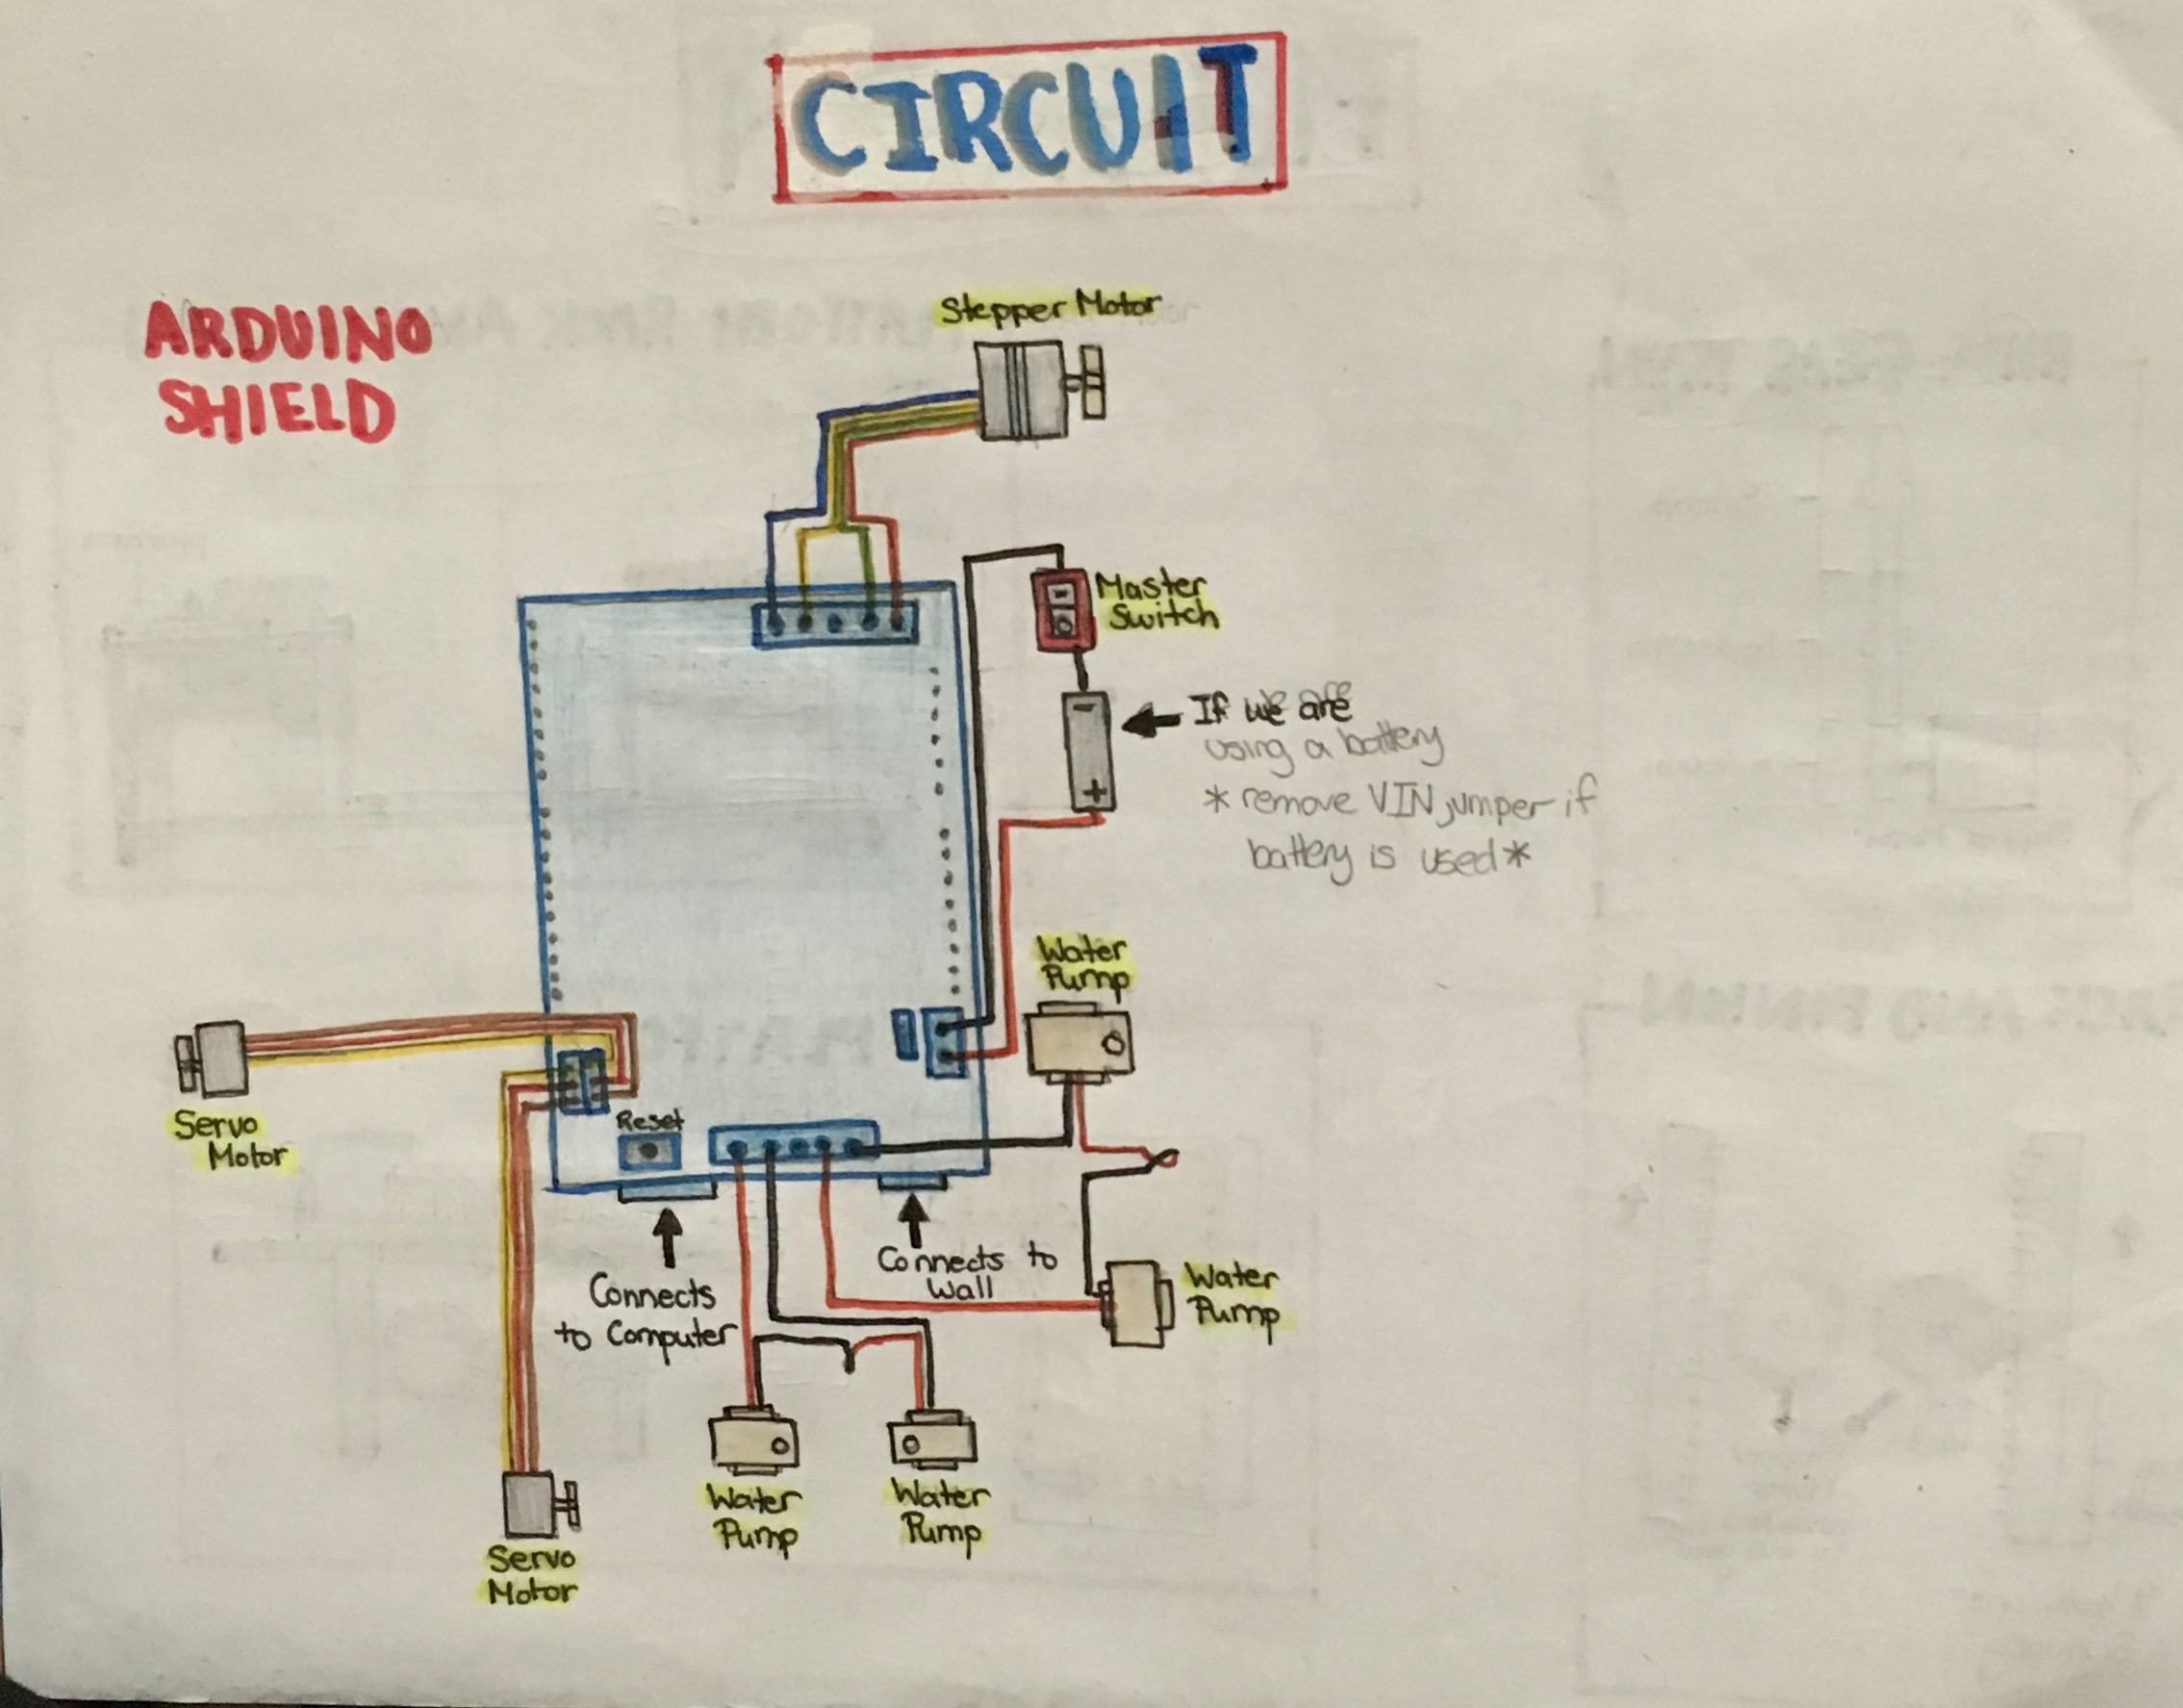 CIRCUIT
ARDUINO
SHIELD
Stepper Motor
Master
Switch
-
+
If we are
using a battery
* remove VIN jumper if
battery is used *
Water
Pump
Servo
Motor
Reset
Connects
to Computer
Connects to
Wall
Water
Pump
Water
Pump
Water
Pump
Servo
Motor